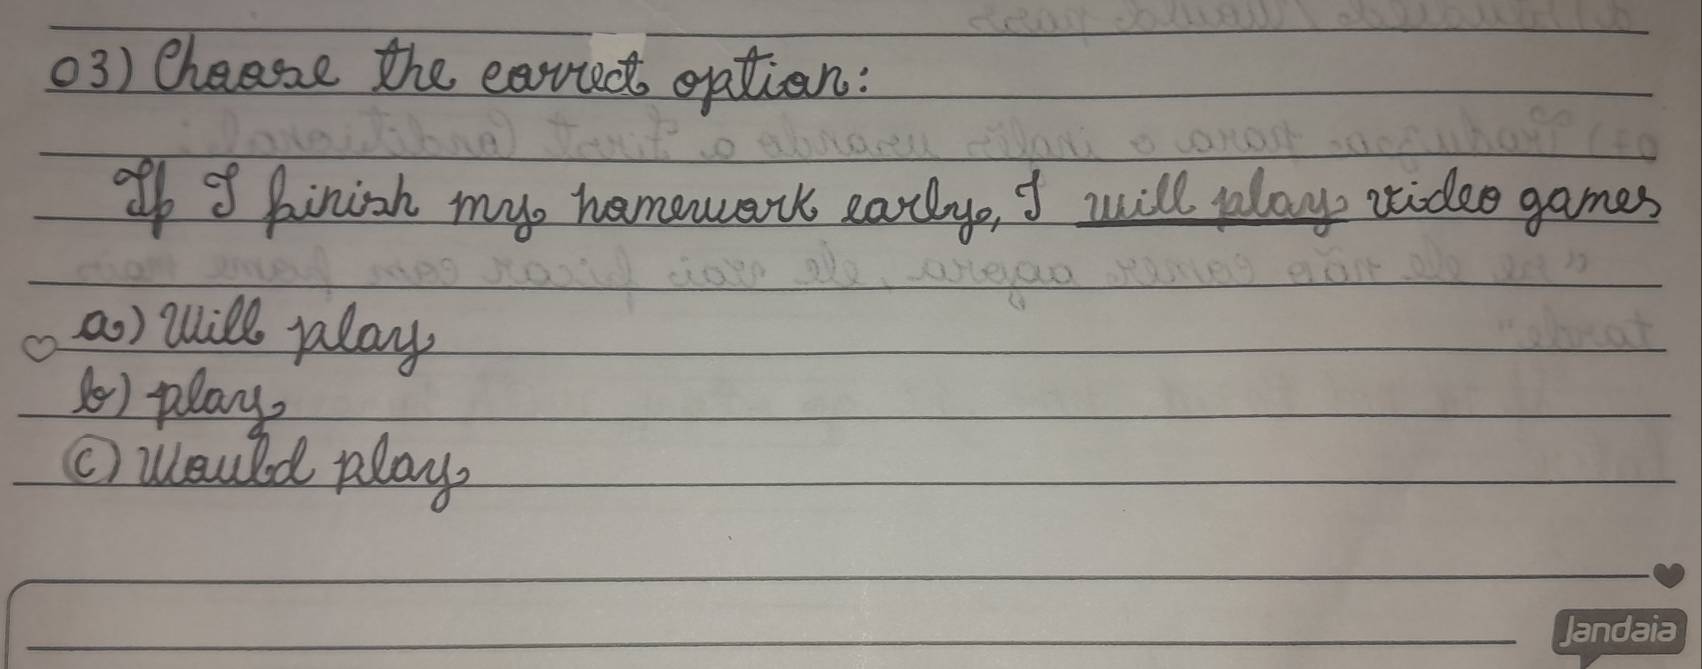 03) Choose the correct option:
If I finish my homework early, I will play video games
a) Will play
b) play
c) Would play
Jandaia